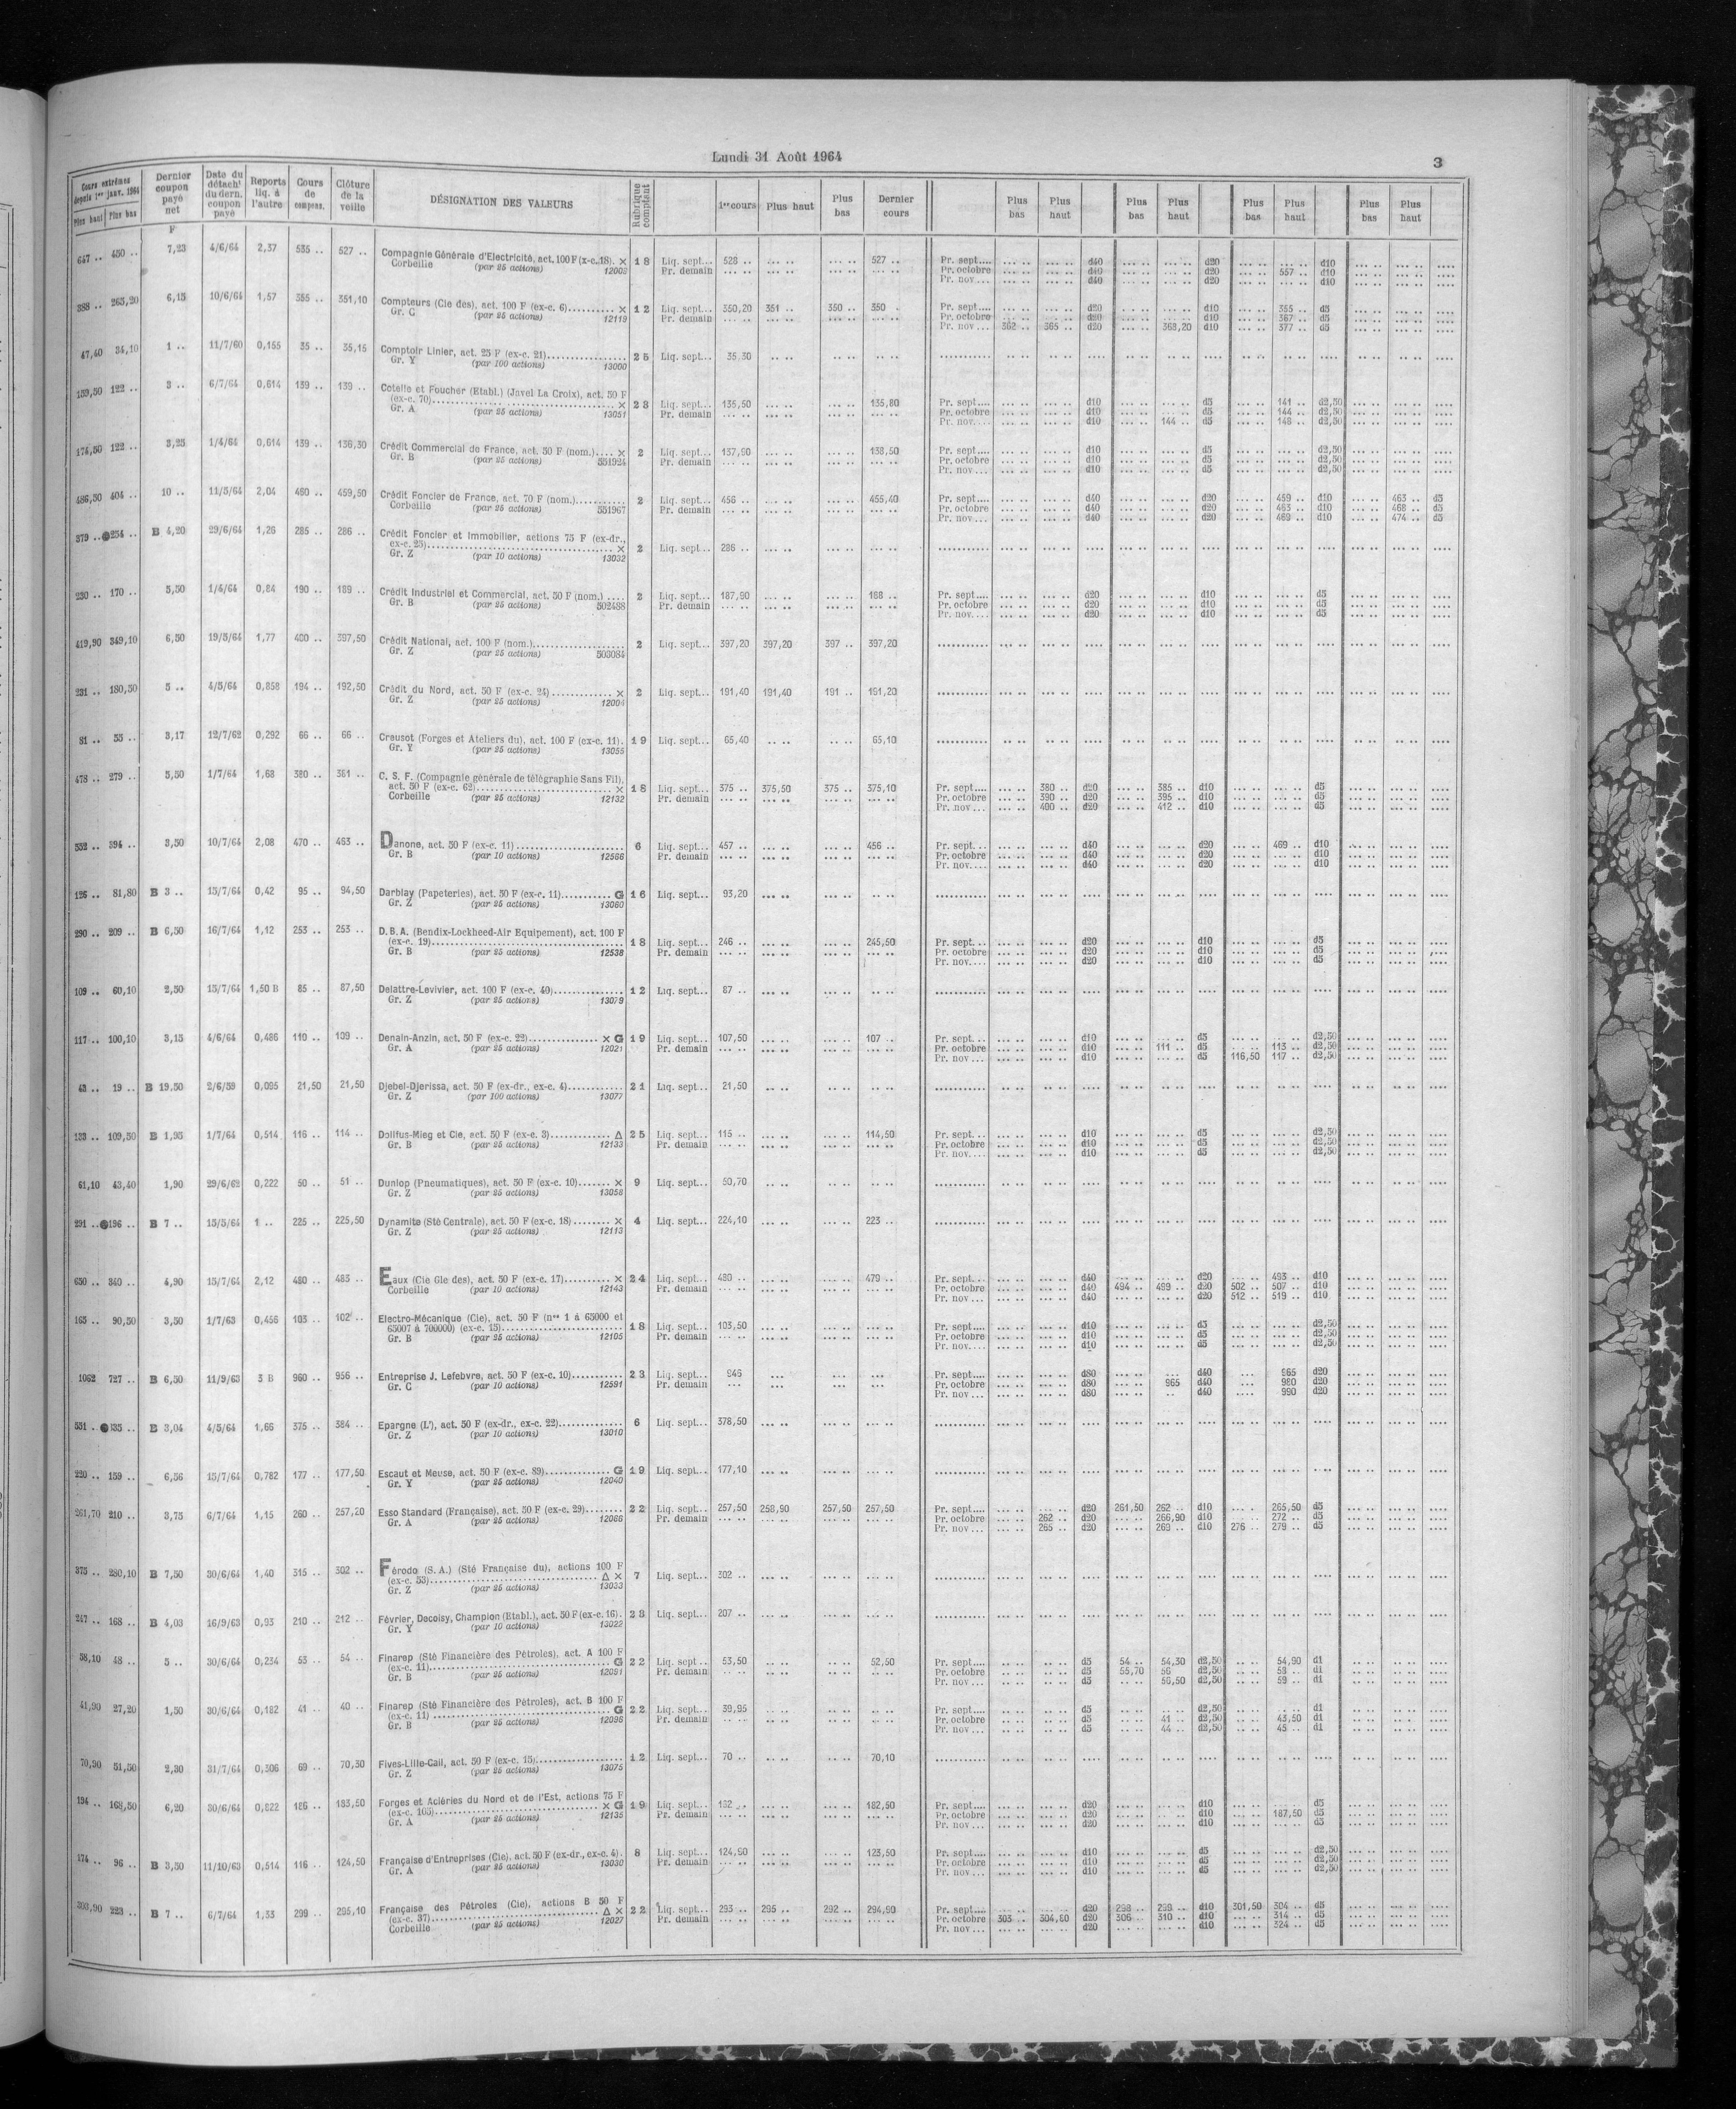 Lundi 31 Août 1964
3
Cours extrêmes depuis 1er janv. 1964 Plus haut Plus bas | Dernier coupon payé net | Date du détacht du dern. coupon payé | Reports liq. à l'autre | Cours de compens. | Clôture de la veille | DÉSIGNATION DES VALEURS | Rubrique comptant | 1er cours | Plus haut | Plus bas | Dernier cours | Plus bas | Plus haut | Plus bas | Plus haut | Plus bas | Plus haut | Plus bas | Plus haut
F
647 .. 450 .. 7,23 4/6/64 2,37 535 .. 527 .. Compagnie Générale d'Electricité, act. 100 F (x-c.18). × 18 Liq. sept... 528 .. 527 .. Pr. sept.... d40 d20 d10
Corbeille (par 25 actions) 12002 Pr. demain Pr. octobre d40 d20 557 .. d10
Pr. nov... d40 d20 d10
388 .. 263,20 6,15 10/6/64 1,57 355 .. 351,10 Compteurs (Cie des), act. 100 F (ex-c. 6).......... × 12 Liq. sept... 350,20 351 .. 350 .. 350 .. Pr. sept.... d20 d10 355 .. d5
Gr. C (par 25 actions) 12119 Pr. demain Pr. octobre d20 d10 367 .. d5
Pr. nov... 362 .. 365 .. d20 368,20 d10 377 .. d5
47,40 34,10 1 .. 11/7/60 0,155 35 .. 35,15 Comptoir Linier, act. 25 F (ex-c. 21)................ 25 Liq. sept... 35,30
Gr. Y (par 100 actions) 13000
159,50 122 .. 3 .. 6/7/64 0,614 139 .. 139 .. Cotelle et Foucher (Etabl.) (Javel La Croix), act. 50 F
(ex-c. 70).......... × 23 Liq. sept... 135,50 135,80 Pr. sept.... d10 d5 141 .. d2,50
Gr. A (par 25 actions) 13051 Pr. demain Pr. octobre d10 d5 144 .. d2,50
Pr. nov.... d10 144 .. d5 148 .. d2,50
174,50 122 .. 3,25 1/4/64 0,614 139 .. 136,30 Crédit Commercial de France, act. 50 F (nom.).... × 2 Liq. sept... 137,90 138,50 Pr. sept.... d10 d5 d2,50
Gr. B (par 25 actions) 551924 Pr. demain Pr. octobre d10 d5 d2,50
Pr. nov... d10 d5 d2,50
486,50 404 .. 10 .. 11/5/64 2,04 460 .. 459,50 Crédit Foncier de France, act. 70 F (nom.)........... 2 Liq. sept... 456 .. 455,40 Pr. sept.... d40 d20 459 .. d10 463 .. d5
Corbeille (par 25 actions) 551967 Pr. demain Pr. octobre d40 d20 463 .. d10 468 .. d5
Pr. nov... d40 d20 469 .. d10 474 .. d5
379 .. ●254 .. B 4,20 29/6/64 1,26 285 .. 286 .. Crédit Foncier et Immobilier, actions 75 F (ex-dr.,
ex-c. 25).......... × 2 Liq. sept... 286 ..
Gr. Z (par 10 actions) 13032
230 .. 170 .. 5,50 1/4/64 0,84 190 .. 189 .. Crédit Industriel et Commercial, act. 50 F (nom.) .... 2 Liq. sept... 187,90 188 .. Pr. sept.... d20 d10 d5
Gr. B (par 25 actions) 502488 Pr. demain Pr. octobre d20 d10 d5
Pr. nov.... d20 d10 d5
419,90 349,10 6,50 19/5/64 1,77 400 .. 397,50 Crédit National, act. 100 F (nom.)................... 2 Liq. sept... 397,20 397,20 397 .. 397,20
Gr. Z (par 25 actions) 503084
231 .. 180,50 5 .. 4/5/64 0,858 194 .. 192,50 Crédit du Nord, act. 50 F (ex-c. 24)............. × 2 Liq. sept... 191,40 191,40 191 .. 191,20
Gr. Z (par 25 actions) 12004
81 .. 55 .. 3,17 12/7/62 0,292 66 .. 66 .. Creusot (Forges et Ateliers du), act. 100 F (ex-c. 11). 19 Liq. sept... 65,40 65,10
Gr. Y (par 25 actions) 13055
478 .. 279 .. 5,50 1/7/64 1,68 380 .. 381 .. C. S. F. (Compagnie générale de télégraphie Sans Fil),
act. 50 F (ex-c. 62).......... × 18 Liq. sept... 375 .. 375,50 375 .. 375,10 Pr. sept.... 380 .. d20 385 .. d10 d5
Corbeille (par 25 actions) 12132 Pr. demain Pr. octobre 390 .. d20 395 .. d10 d5
Pr. nov... 400 .. d20 412 .. d10 d5
552 .. 394 .. 3,50 10/7/64 2,08 470 .. 463 .. Danone, act. 50 F (ex-c. 11)...................... 6 Liq. sept... 457 .. 456 .. Pr. sept... d40 d20 469 .. d10
Gr. B (par 10 actions) 12566 Pr. demain Pr. octobre d40 d20 d10
Pr. nov.... d40 d20 d10
126 .. 81,80 B 3 .. 15/7/64 0,42 95 .. 94,50 Darblay (Papeteries), act. 50 F (ex-c. 11)........... G 16 Liq. sept... 93,20
Gr. Z (par 25 actions) 13060
290 .. 209 .. B 6,50 16/7/64 1,12 253 .. 253 .. D.B.A. (Bendix-Lockheed-Air Equipement), act. 100 F
(ex-c. 19).......... 18 Liq. sept... 246 .. 245,50 Pr. sept... d20 d10 d5
Gr. B (par 25 actions) 12538 Pr. demain Pr. octobre d20 d10 d5
Pr. nov.... d20 d10 d5
109 .. 60,10 2,50 15/7/64 1,50 B 85 .. 87,50 Delattre-Levivier, act. 100 F (ex-c. 40).............. 12 Liq. sept... 87 ..
Gr. Z (par 25 actions) 13079
117 .. 100,10 3,15 4/6/64 0,486 110 .. 109 .. Denain-Anzin, act. 50 F (ex-c. 22).............. × G 19 Liq. sept... 107,50 107 .. Pr. sept... d10 d5 d2,50
Gr. A (par 25 actions) 12021 Pr. demain Pr. octobre d10 111 .. d5 113 .. d2,50
Pr. nov... d10 d5 116,50 117 .. d2,50
19 .. B 19,50 2/6/59 0,095 21,50 21,50 Djebel-Djerissa, act. 50 F (ex-dr., ex-c. 4)........... 21 Liq. sept... 21,50
Gr. Z (par 100 actions) 13077
109,50 B 1,95 1/7/64 0,514 116 .. 114 .. Dollfus-Mieg et Cie, act. 50 F (ex-c. 3)............. Δ 25 Liq. sept... 115 .. 114,50 Pr. sept... d10 d5 d2,50
Gr. B (par 25 actions) 12133 Pr. demain Pr. octobre d10 d5 d2,50
Pr. nov.... d10 d5 d2,50
61,10 43,40 1,90 29/6/62 0,222 50 .. 51 .. Dunlop (Pneumatiques), act. 50 F (ex-c. 10)....... × 9 Liq. sept... 50,70
Gr. Z (par 25 actions) 13058
291 .. ●196 .. B 7 .. 15/5/64 1 .. 225 .. 225,50 Dynamite (Sté Centrale), act. 50 F (ex-c. 18)........ × 4 Liq. sept... 224,10 223 ..
Gr. Z (par 25 actions) 12113
650 .. 340 .. 4,90 15/7/64 2,12 480 .. 483 .. Eaux (Cie Gle des), act. 50 F (ex-c. 17).......... × 24 Liq. sept... 480 .. 479 .. Pr. sept... d40 d20 493 .. d10
Corbeille (par 10 actions) 12143 Pr. demain Pr. octobre d40 494 .. 499 .. d20 502 .. 507 .. d10
Pr. nov... d40 d20 512 .. 519 .. d10
165 .. 90,50 3,50 1/7/63 0,456 103 .. 102 .. Electro-Mécanique (Cie), act. 50 F (nos 1 à 65000 et
65007 à 700000) (ex-c. 15).......... 18 Liq. sept... 103,50 Pr. sept.... d10 d5 d2,50
Gr. B (par 25 actions) 12105 Pr. demain Pr. octobre d10 d5 d2,50
Pr. nov.... d10 d5 d2,50
1062 727 .. B 6,50 11/9/63 3 B 960 .. 956 .. Entreprise J. Lefebvre, act. 50 F (ex-c. 10).......... 23 Liq. sept... 946 Pr. sept.... d80 d40 965 d20
Gr. C (par 10 actions) 12591 Pr. demain Pr. octobre d80 965 d40 980 d20
Pr. nov... d80 d40 990 d20
531 .. ● B 3,04 4/5/64 1,66 375 .. 384 .. Epargne (L'), act. 50 F (ex-dr., ex-c. 22)............. 6 Liq. sept... 378,50
Gr. Z (par 10 actions) 13010
220 .. 159 .. 6,56 15/7/64 0,782 177 .. 177,50 Escaut et Meuse, act. 50 F (ex-c. 89).............. G 19 Liq. sept... 177,10
Gr. Y (par 25 actions) 12040
261,70 210 .. 3,75 6/7/64 1,15 260 .. 257,20 Esso Standard (Française), act. 50 F (ex-c. 29)........ 22 Liq. sept... 257,50 258,90 257,50 257,50 Pr. sept.... d20 261,50 262 .. d10 265,50 d5
Gr. A (par 25 actions) 12066 Pr. demain Pr. octobre 262 .. d20 266,90 d10 272 .. d5
Pr. nov... 265 .. d20 269 .. d10 276 .. 279 .. d5
375 .. 280,10 B 7,50 30/6/64 1,40 315 .. 302 .. Férodo (S.A.) (Sté Française du), actions 100 F
(ex-c. 53).......... Δ × 7 Liq. sept... 302 ..
Gr. Z (par 25 actions) 13033
247 .. 168 .. B 4,03 16/9/63 0,93 210 .. 212 .. Février, Decoisy, Champion (Etabl.), act. 50 F (ex-c. 16). 23 Liq. sept... 207 ..
Gr. Y (par 10 actions) 13022
58,10 48 .. 5 .. 30/6/64 0,234 53 .. 54 .. Finarep (Sté Financière des Pétroles), act. A 100 F
(ex-c. 11).......... G 22 Liq. sept... 53,50 52,50 Pr. sept.... d5 54 .. 54,30 d2,50 54,90 d1
Gr. B (par 25 actions) 12091 Pr. demain Pr. octobre d5 55,70 56 d2,50 58 .. d1
Pr. nov... d5 56,50 d2,50 59 .. d1
41,90 27,20 1,50 30/6/64 0,182 41 .. 40 .. Finarep (Sté Financière des Pétroles), act. B 100 F
(ex-c. 11).......... G 22 Liq. sept... 39,95 Pr. sept.... d5 d2,50 d1
Gr. B (par 25 actions) 12096 Pr. demain Pr. octobre d5 41 .. d2,50 43,50 d1
Pr. nov... d5 44 .. d2,50 45 .. d1
70,90 51,50 2,30 31/7/64 0,306 69 .. 70,30 Fives-Lille-Cail, act. 50 F (ex-c. 15).................. 12 Liq. sept... 70 .. 70,10
Gr. Z (par 25 actions) 13075
194 .. 168,50 6,20 30/6/64 0,822 186 .. 183,50 Forges et Aciéries du Nord et de l'Est, actions 75 F
(ex-c. 105).......... × G 19 Liq. sept... 182 .. 182,50 Pr. sept.... d20 d10 d5
Gr. A (par 25 actions) 12135 Pr. demain Pr. octobre d20 d10 187,50 d5
Pr. nov... d20 d10 d5
174 .. 96 .. B 3,50 11/10/63 0,514 116 .. 124,50 Française d'Entreprises (Cie), act. 50 F (ex-dr., ex-c. 4). 8 Liq. sept... 124,90 123,50 Pr. sept.... d10 d5 d2,50
Gr. A (par 25 actions) 13030 Pr. demain Pr. octobre d10 d5 d2,50
Pr. nov... d10 d5 d2,50
303,90 223 .. B 7 .. 6/7/64 1,33 299 .. 295,10 Française des Pétroles (Cie), actions B 50 F
(ex-c. 37).......... Δ × 22 Liq. sept... 293 .. 295 .. 292 .. 294,90 Pr. sept.... d20 298 .. 299 .. d10 301,50 304 .. d5
Corbeille (par 25 actions) 12027 Pr. demain Pr. octobre 303 .. 304,80 d20 306 .. 310 .. d10 314 .. d5
Pr. nov... d20 d10 324 .. d5